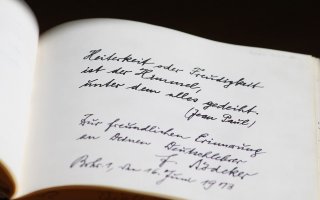 Heiterkeit oder Freudigkeit
ist der Himmel,
unter dem alles gedeiht.
(Jean Paul)
Zur freundlichen Erinnerung
an Deinen Deutschlehrer
F. Nödeker
den 16. Juni 1973